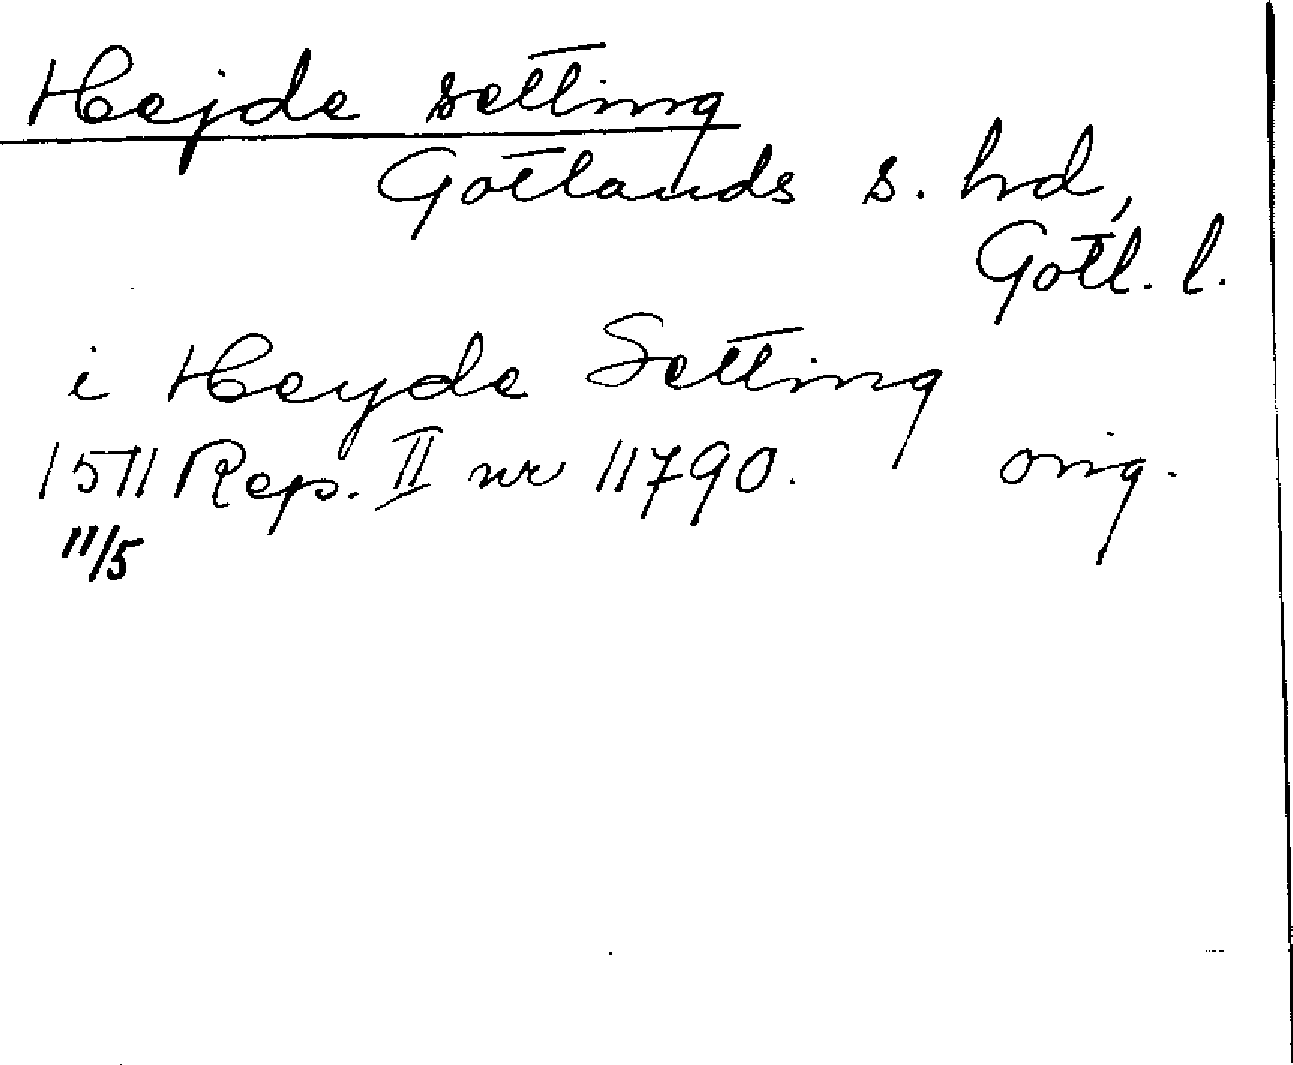 Hejde setting
Gotlands s. hd,
Gotl. l.
i Heyde Setting
1511 Rep. II nr 11790. orig.
11/5